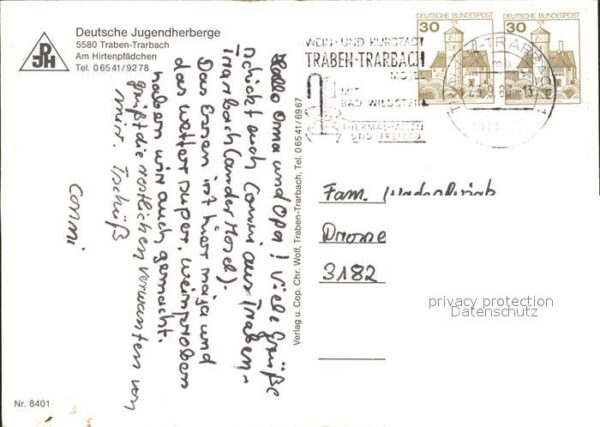 DJH
Deutsche Jugendherberge
5580 Traben-Trarbach
Am Hirtenpfädchen
Tel. 06541/9278
Hallo Oma und Opa! Viele Grüße
schickt euch Conni aus Traben-
Trarbach (an der Mosel).
Das Essen ist hier naja und
das wetter super. weinproben
haben wir auch gemacht.
grüßt die restlichen verwanten von
mir. Tschüß
Conni
Verlag u. Cop. Chr. Wolf, Traben-Trarbach, Tel. 06541/6967
Nr. 8401
30 DEUTSCHE BUNDESPOST
30 DEUTSCHE BUNDESPOST
WEIN- UND KURSTADT
TRABEN-TRARBACH
MOSEL
MIT
BAD WILDSTEIN
THERMALHALLEN
UND FREIBAD
Fam.
3182
privacy protection
Datenschutz